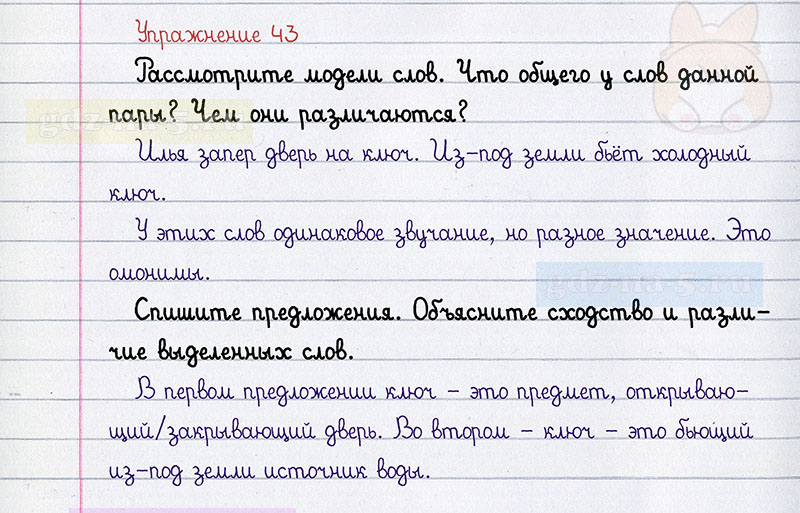 Упражнение 43
Рассмотрите модели слов. Что общего у слов данной
пары? Чем они различаются?
gdz-na-5.ru
Илья запер дверь на ключ. Из-под земли бьёт холодный
ключ.
У этих слов одинаковое звучание, но разное значение. Это
омонимы.
gdz-na-5.ru
Спишите предложения. Объясните сходство и разли-
чие выделенных слов.
В первом предложении ключ - это предмет, открываю-
щий/закрывающий дверь. Во втором - ключ - это бьющий
из-под земли источник воды.